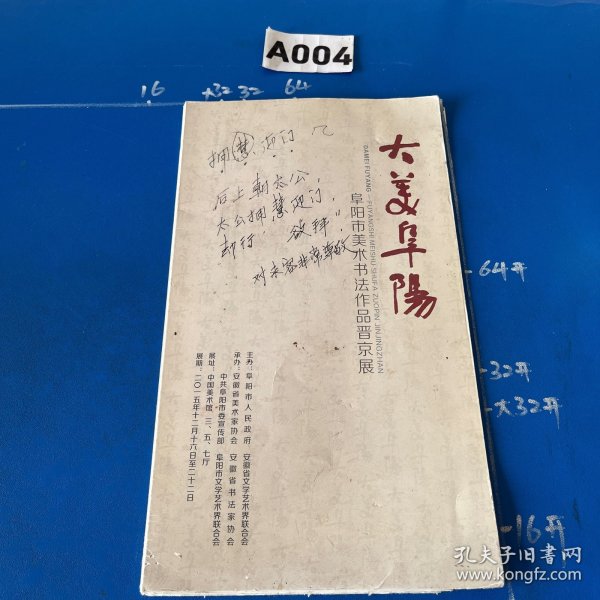 A004
16
大32
32
64
大美阜陽
DAMEI FUYANG——FUYANGSHI MEISHU SHUFA ZUOPIN JINJINGZHAN
阜阳市美术书法作品晋京展
拥慧迎门
后上朝太公,
太公拥慧迎门,
却行,欲拜",
对来客非常尊敬
主办:阜阳市人民政府 安徽省文学艺术界联合会
承办:安徽省美术家协会 安徽省书法家协会
中共阜阳市委宣传部 阜阳市文学艺术界联合会
展址:中国美术馆 三、五、七厅
展期:二〇一五年十二月十六日至二十二日
-64开
-32开
-大32开
-16开
孔夫子旧书网
www.kongfz.com